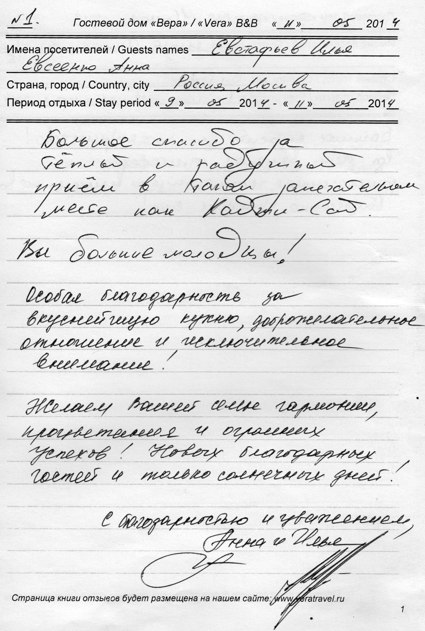 №1. Гостевой дом «Вера» / «Vera» B&B « 11 » 05 2014
Имена посетителей / Guests names Евстафьев Илья
Евсеенко Анна
Страна, город / Country, city Россия, Москва
Период отдыха / Stay period « 9 » 05 2014 - « 11 » 05 2014
Большое спасибо за
тёплый и радушный
приём в таком замечательном
месте как Каджи-Сай.
Вы большие молодцы!
Особая благодарность за
вкуснейшую кухню, доброжелательное
отношение и исключительное
внимание!
Желаем Вашей семье гармонии,
процветания и огромных
успехов! Новых благодарных
гостей и только солнечных дней!
С благодарностью и уважением,
Анна и Илья
Страница книги отзывов будет размещена на нашем сайте: www.veratravel.ru
1